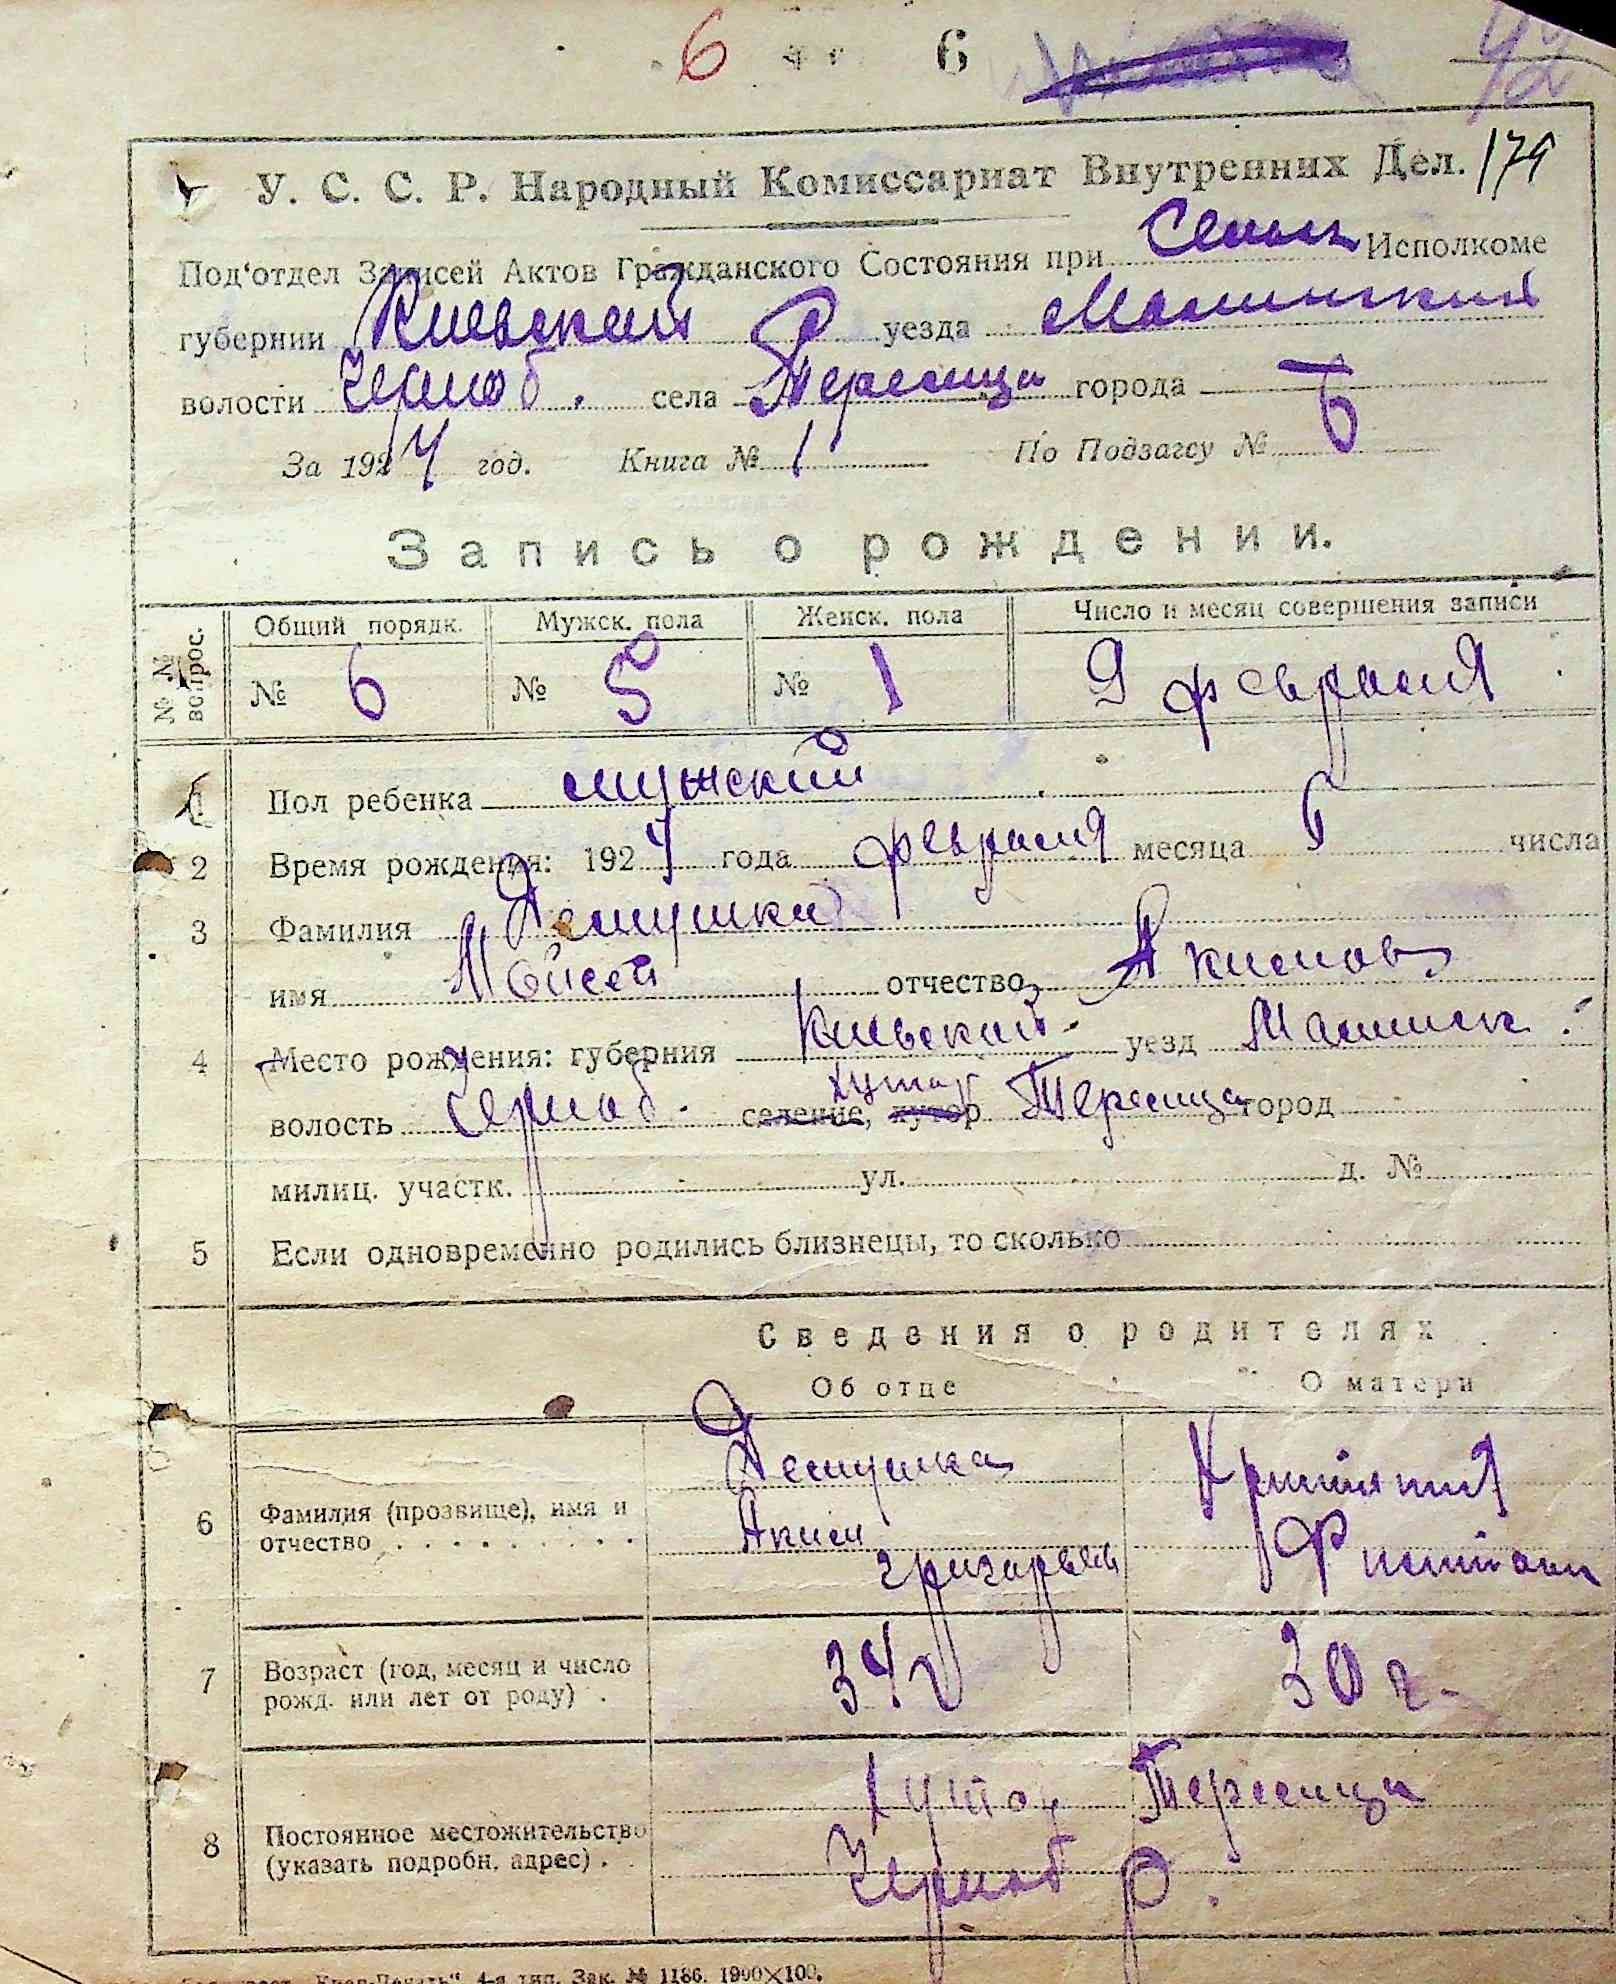 6 6 42
У. С. С. Р. Народный Комиссариат Внутренних Дел. 179
Под'отдел Записей Актов Гражданского Состояния при Сельск Исполкоме
губернии Киевской уезда
волости Черноб. села города
За 1924 год. Книга № 1 По Подзагсу № 6
Запись о рождении.
№№ вопрос. Общий порядк. Мужск. пола Женск. пола Число и месяц совершения записи
№ 6 № 5 № 1 9 февраля
1 Пол ребенка мужский
2 Время рождения: 1924 года февраля месяца числа
3 Фамилия Демушка
имя Мойсей отчество Акимов
4 Место рождения: губерния Киевской уезд
волость Черноб. селение, хутор хутор город
милиц. участк. ул. д. №
5 Если одновременно родились близнецы, то сколько
Сведения о родителях
Об отце О матери
6 Фамилия (прозвище), имя и отчество Демушка
Аким
7 Возраст (год, месяц и число рожд. или лет от роду) 34 г 30 г.
8 Постоянное местожительство (указать подробн. адрес) Хутор
Черноб р.
4-я тип. Зак. № 1186. 1900×100.